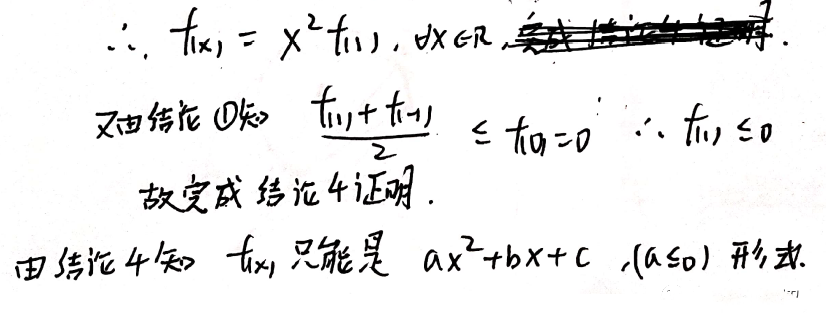 ∴ f(x) = x² f(1), ∀x∈R.
又由结论①知 (f(1)+f(-1))/2 ≤ f(0)=0 ∴ f(1) ≤0
故完成结论4证明.
由结论4知 f(x) 只能是 ax²+bx+c ,(a≤0) 形式.